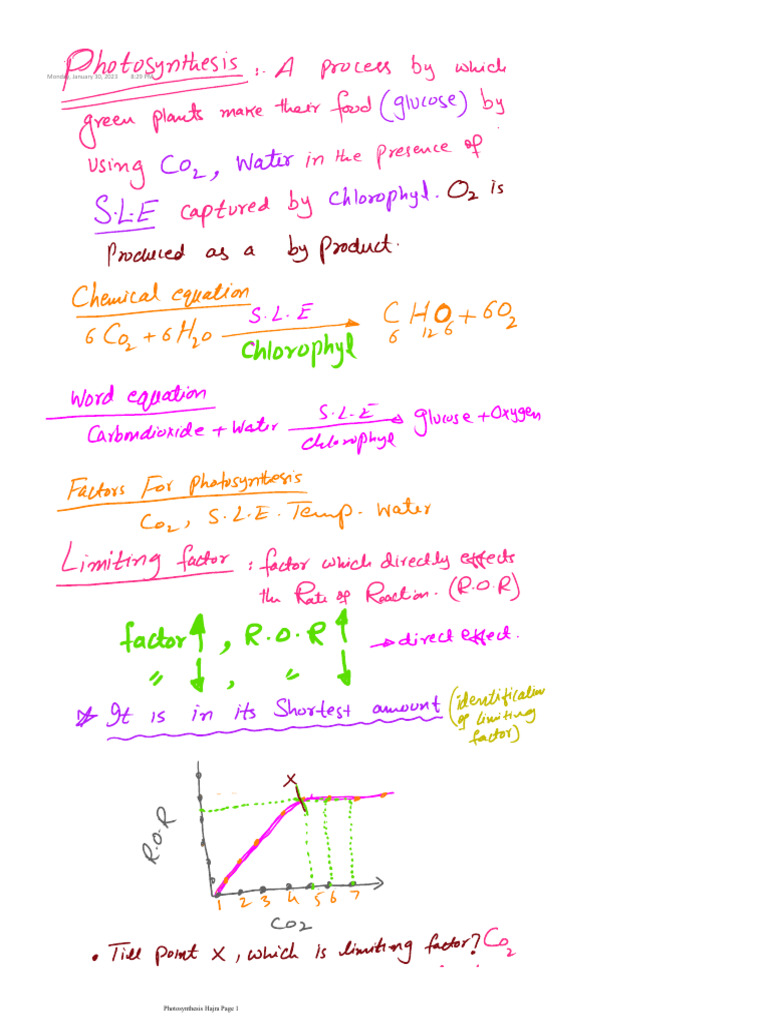 Photosynthesis :. A process by which
Monday, January 30, 2023 8:20 PM
green plants make their food (glucose) by
using CO2, Water in the presence of
S.L.E captured by chlorophyl. O2 is
Produced as a by Product.
Chemical equation
6CO2 + 6H2O S.L.E Chlorophyl C6H12O6 + 6O2
Word equation
Carbondioxide + Water S.L.E Chlorophyl glucose + Oxygen
Factors For Photosynthesis
CO2, S.L.E. Temp. Water
Limiting factor : factor which directly effects
the Rate of Reaction. (R.O.R)
factor ↑, R.O.R ↑ → direct effect.
" ↓, " ↓
* It is in its Shortest amount (identification
of limiting
factor)
X
R.O.R
1 2 3 4 5 6 7
CO2
• Till point X, which is limiting factor? CO2
Photosynthesis Hajra Page 1